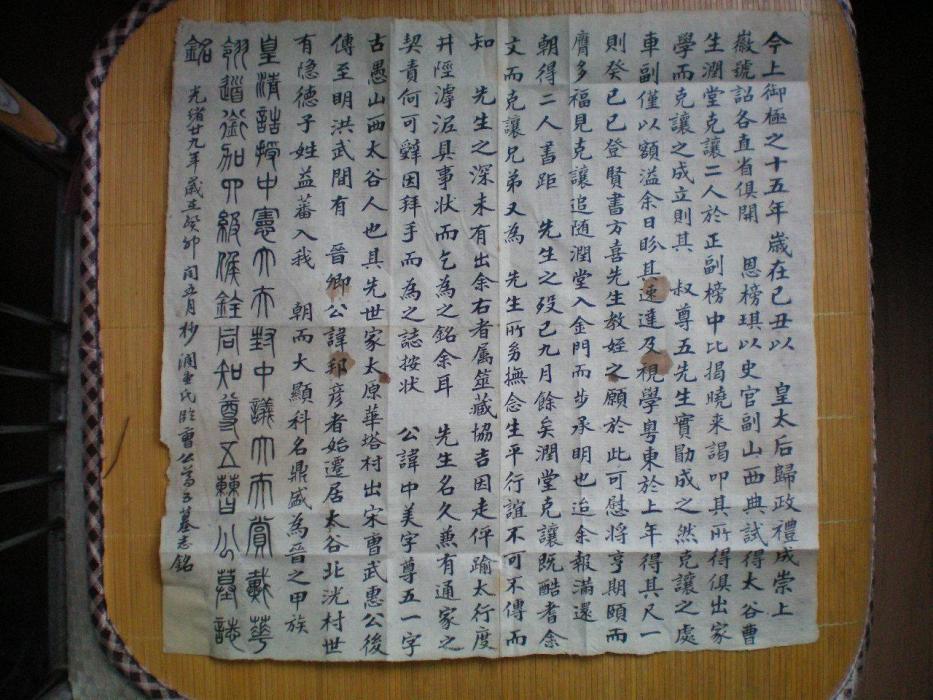 今上御極之十五年 歲在己丑以 皇太后歸政禮成崇上
徽號詔各直省俱開 恩榜琪以史官副山西典試得太谷曹
生潤堂克讓二人於正副榜中比揭曉来謁叩其所得俱出家
學而克讓之成立則其 叔尊五先生實勖成之然克讓之處
車副僅以額溢余日盼其速達及視學粵東於上年得其尺一
則癸巳已登賢書方喜先生教姪之願於此可慰將亨期頤而
膺多福見克讓追随潤堂入金門而步承明也迨余報滿還
朝得二人書距 先生之歿已九月餘矣潤堂克讓既酷耆余
文而克讓兄弟又為 先生所多撫念生平行誼不可不傳而
知 先生之深未有出余右者属筮藏協吉因走伻踰太行度
井陘滹沱具事状而乞為之銘余耳 先生名久兼有通家之
契責何可辭因拜手而為之誌按状 公諱中美字尊五一字
古愚山西太谷人也其先世家太原華塔村出宋曹武惠公後
傳至明洪武間有 晉卿公諱邦彦者始遷居太谷北洸村世
有隐德子姓益蕃入我 朝而大顯科名鼎盛為晉之甲族
皇清誥授中憲大夫封中議大夫賞戴花
翎道銜加四級候銓同知尊五曹公墓誌
銘 光緒廿九年歲在癸卯閏五月杪潤重氏臨曹公尊五墓志銘